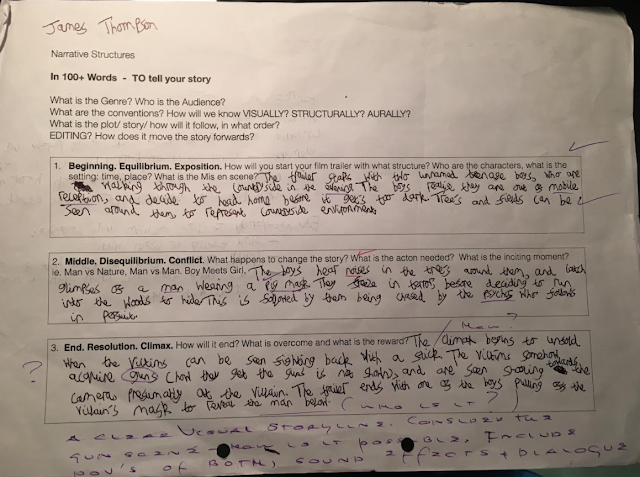 James Thompson
Narrative Structures
In 100+ Words - TO tell your story
What is the Genre? Who is the Audience?
What are the conventions? How will we know VISUALLY? STRUCTURALLY? AURALLY?
What is the plot/ story/ how will it follow, in what order?
EDITING? How does it move the story forwards?
1. Beginning. Equilibrium. Exposition. How will you start your film trailer with what structure? Who are the characters, what is the
setting: time, place? What is the Mis en scene? The trailer starts with two unnamed teenage boys, who are
walking through the countryside in the evening. The boys realise they are out of mobile
reception, and decide to head home before it gets too dark. Tree's and fields can be
seen around them, to represent countryside environment.
2. Middle. Disequilibrium. Conflict. What happens to change the story? What is the acton needed? What is the inciting moment?
ie. Man vs Nature, Man vs Man. Boy Meets Girl. The boys hear noises in the trees around them, and catch
glimpses of a man wearing a pig mask. They freeze in terror before deciding to run
into the woods to hide. This is followed by them being chased by the psycho who follows
in pursuit.
How?
3. End. Resolution. Climax. How will it end? What is overcome and what is the reward? The climax begins to unfold
when the victims can be seen fighting back with a stick. The victims somehow
? acquire guns (how they get the guns is not shown), and are seen shooting towards the
camera presumably at the villain. The trailer ends with one of the boys pulling off the
villain's mask to reveal the man below. (WHO IS IT?)
A CLEAR VISUAL STORYLINE. CONSIDER THE
GUN SCENE - HOW IS IT POSSIBLE, INCLUDE
POV'S OF BOTH, SOUND EFFECTS + DIALOGUE